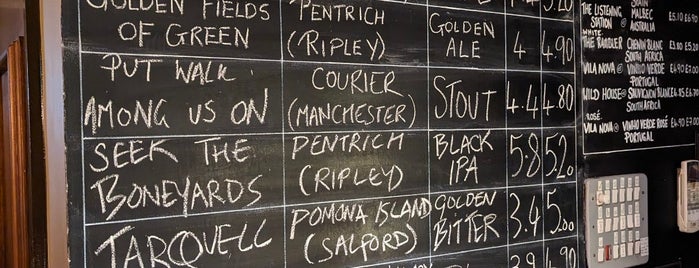 GOLDEN FIELDS
OF GREEN
PENTRICH
(RIPLEY)
GOLDEN
ALE
4
4.90
PUT WALK
AMONG US ON
COURIER
(MANCHESTER)
STOUT
4.4
4.80
SEEK THE
BONEYARDS
PENTRICH
(RIPLEY)
BLACK
IPA
5.8
5.20
TARQUELL
POMONA ISLAND
(SALFORD)
GOLDEN
BITTER
3.4
5.00
3.9
4.90
THE LISTENING
STATION @
SPAIN
MALBEC
AUSTRALIA
£5.10
WHITE
THE RAMBLER
CHENIN BLANC
SOUTH AFRICA
VILA NOVA @
VINHO VERDE
PORTUGAL
£4.90
WILD HOUSE @
SAUVIGNON BLANC
SOUTH AFRICA
ROSÉ
VILA NOVA @
VINHO VERDE ROSÉ
PORTUGAL
£4.90
£7.00